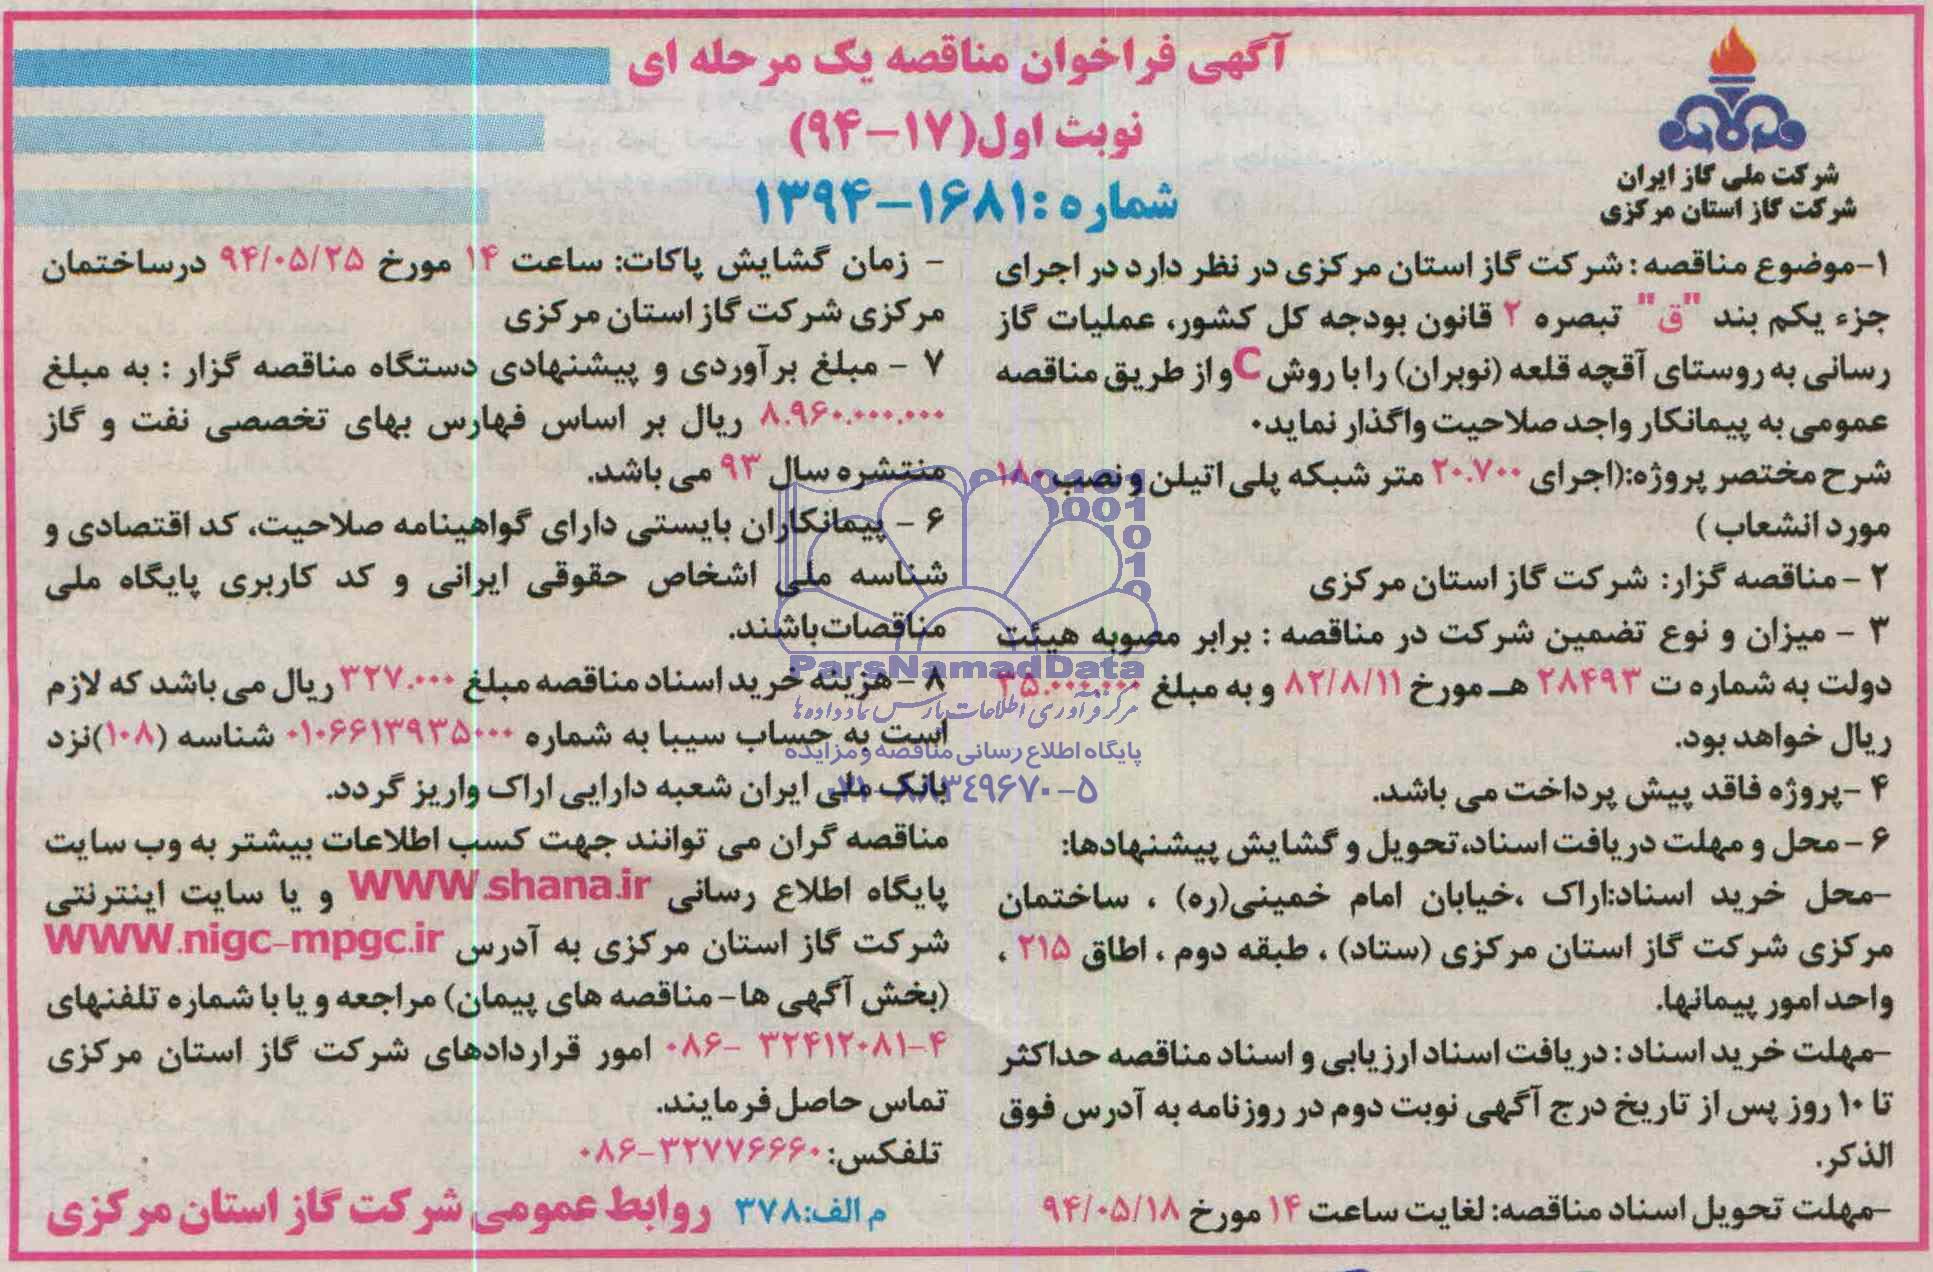 آگهی فراخوان مناقصه یک مرحله ای
نوبت اول(۱۷-۹۴)
شماره :۱۶۸۱-۱۳۹۴
شرکت ملی گاز ایران
شرکت گاز استان مرکزی
۱-موضوع مناقصه : شرکت گاز استان مرکزی در نظر دارد در اجرای
جزء یکم بند "ق" تبصره ۲ قانون بودجه کل کشور، عملیات گاز
رسانی به روستای آقچه قلعه (نوبران) را با روش C و از طریق مناقصه
عمومی به پیمانکار واجد صلاحیت واگذار نماید.
شرح مختصر پروژه:(اجرای ۲۰.۷۰۰ متر شبکه پلی اتیلن و نصب ۱۸۰
مورد انشعاب )
۲ - مناقصه گزار: شرکت گاز استان مرکزی
۳ - میزان و نوع تضمین شرکت در مناقصه : برابر مصوبه هیئت
دولت به شماره ت ۲۸۴۹۳ هـ مورخ ۸۲/۸/۱۱ و به مبلغ ۳۵.۰۰۰.۰۰۰
ریال خواهد بود.
۴ -پروژه فاقد پیش پرداخت می باشد.
۶ - محل و مهلت دریافت اسناد،تحویل و گشایش پیشنهادها:
-محل خرید اسناد:اراک ،خیابان امام خمینی(ره) ، ساختمان
مرکزی شرکت گاز استان مرکزی (ستاد) ، طبقه دوم ، اطاق ۲۱۵ ،
واحد امور پیمانها.
-مهلت خرید اسناد : دریافت اسناد ارزیابی و اسناد مناقصه حداکثر
تا ۱۰ روز پس از تاریخ درج آگهی نوبت دوم در روزنامه به آدرس فوق
الذکر.
-مهلت تحویل اسناد مناقصه: لغایت ساعت ۱۴ مورخ ۹۴/۰۵/۱۸
- زمان گشایش پاکات: ساعت ۱۴ مورخ ۹۴/۰۵/۲۵ درساختمان
مرکزی شرکت گاز استان مرکزی
۷ - مبلغ برآوردی و پیشنهادی دستگاه مناقصه گزار : به مبلغ
۸.۹۶۰.۰۰۰.۰۰۰ ریال بر اساس فهارس بهای تخصصی نفت و گاز
منتشره سال ۹۳ می باشد.
۶ - پیمانکاران بایستی دارای گواهینامه صلاحیت، کد اقتصادی و
شناسه ملی اشخاص حقوقی ایرانی و کد کاربری پایگاه ملی
مناقصات باشند.
۸ - هزینه خرید اسناد مناقصه مبلغ ۳۲۷.۰۰۰ ریال می باشد که لازم
است به حساب سیبا به شماره ۰۱۰۶۶۱۳۹۳۵۰۰۰ شناسه (۱۰۸)نزد
بانک ملی ایران شعبه دارایی اراک واریز گردد.
مناقصه گران می توانند جهت کسب اطلاعات بیشتر به وب سایت
پایگاه اطلاع رسانی WWW.shana.ir و یا سایت اینترنتی
شرکت گاز استان مرکزی به آدرس WWW.nigc-mpgc.ir
(بخش آگهی ها- مناقصه های پیمان) مراجعه و یا با شماره تلفنهای
۴-۳۲۴۱۲۰۸۱ -۰۸۶ امور قراردادهای شرکت گاز استان مرکزی
تماس حاصل فرمایند.
تلفکس: ۳۲۷۷۶۶۶۰-۰۸۶
م الف:۳۷۸ روابط عمومی شرکت گاز استان مرکزی
ParsNamadData
مرکز فرآوری اطلاعات پارس نماد داده ها
پایگاه اطلاع رسانی مناقصه و مزایده
۰۲۱-۸۸۳۴۹۶۷۰-۵